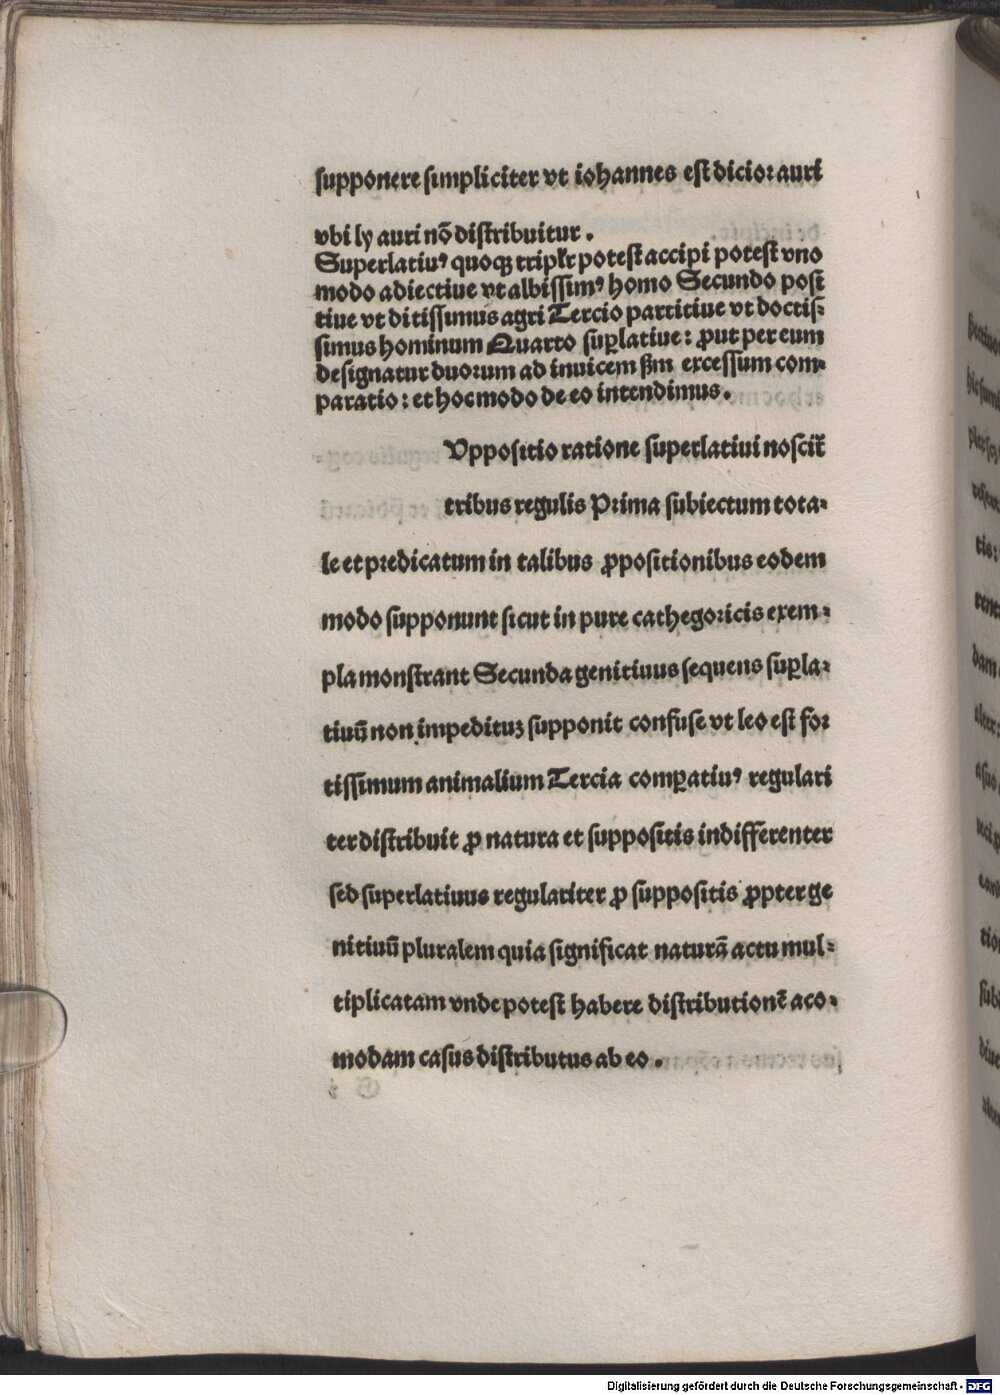 supponere simpliciter vt iohannes est dicior auri
vbi ly auri nō distribuitur .
Superlatiuꝰ quoqꝫ tripl̄r potest accipi potest vno
modo adiectiue vt albissimꝰ homo Secundo posi
tiue vt ditissimus agri Tercio partitiue vt doctis⸗
simus hominum Quarto suꝑlatiue: ꝓut per eum
designatur duorum ad inuicem ẜm excessum com⸗
paratio : et hoc modo de eo intendimus .
Vppositio ratione superlatiui noscit᷑
tribus regulis Prima subiectum tota⸗
le et predicatum in talibus ꝓpositionibus eodem
modo supponunt sicut in pure cathegoricis exem⸗
pla monstrant Secunda genitiuus sequens suꝑla⸗
tiuū non impedituꝫ supponit confuse vt leo est for
tissimum animalium Tercia comꝑatiuꝰ regulari
ter distribuit ꝓ natura et suppositis indifferenter
sed superlatiuus regulariter ꝓ suppositis ꝓpter ge
nitiuū pluralem quia significat naturā actu mul⸗
tiplicatam vnde potest habere distributionē aco⸗
modam casus distributus ab eo .
Digitalisierung gefördert durch die Deutsche Forschungsgemeinschaft - DFG